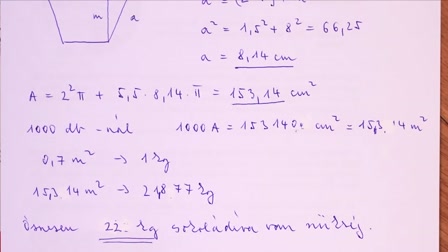 m a
a² = 1,5² + 8² = 66,25
a = 8,14 cm
A = 2²π + 5,5 · 8,14 · π = 153,14 cm²
1000 db -nál 1000 A = 153140 cm² = 15,3 14 m²
0,7 m² → 1 kg
15,3 14 m² → 21,877 kg
Összesen 22 kg csokoládéra van szükség.